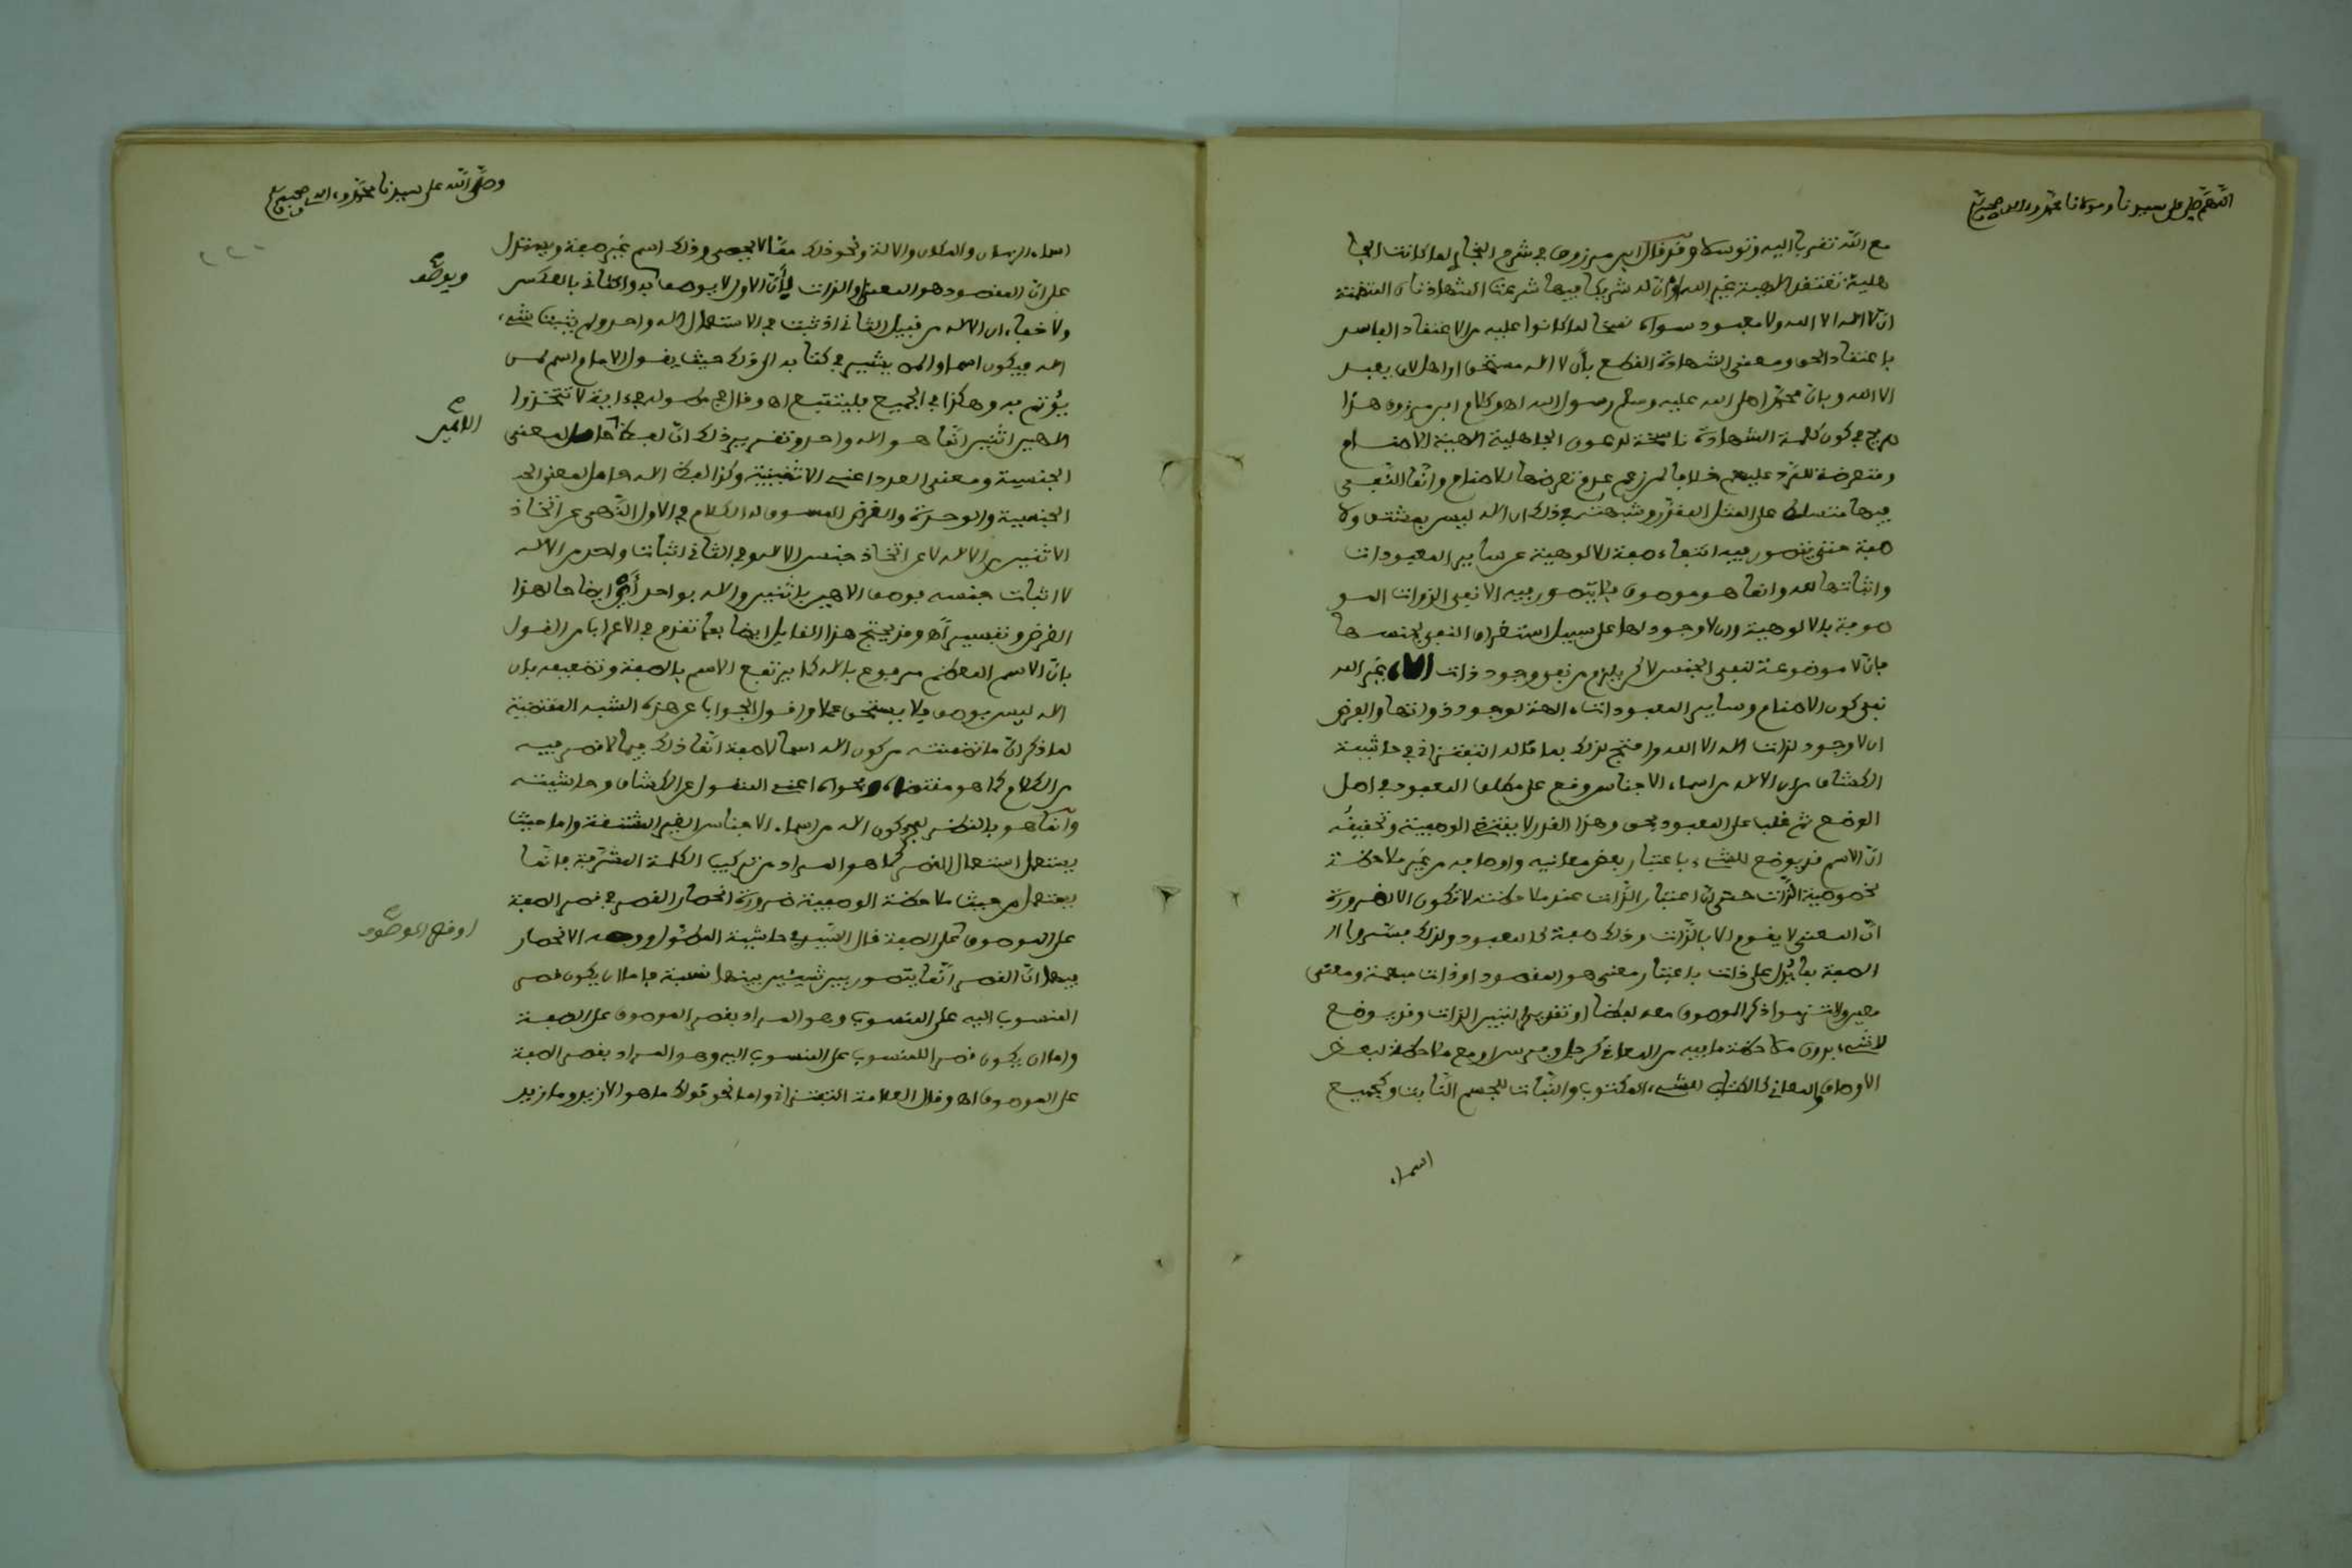 اللهم صل على سيدنا ومولانا محمد وءاله وصحبه
مع الله تقربا اليه وتوسلا وقد قال ابن مرزوق في شرح البخاري لما كانت الجا
هلية تعتقد الهية غير الله وانّ له شريكا فيها شرعت الشهادتان المتضمنة
انّ لا اله الا الله ولا معبود سواه نسخا لما كانوا عليه من الاعتقاد الفاسد
باعتقاد الحق ومعنى الشهادة القطع بأن لا اله مستحق او اهل لان يعبد
الا الله وبانّ محمّدا صلى الله عليه وسلم رسول الله اه وكلام ابن مرزوق هذا
صريح في كون كلمة الشهادة ناسخة لدعوى الجاهلية الاهية الاصنام
ومتعرضة للرّد عليهم خلافا لمن زعم عدم تعرضها للاصنام وانّما النّفي
فيها متسلط على المثل المقدّر وشبهته في ذلك ان اله ليس بمشتق ولا
صفة حتى يتصور فيه انتفاء صفة الالوهية عن ساير المعبودات
واثباتها لله وانما هو موصوف فلا يتصور فيه الا نفي الذوات المو
صوفة بالالوهية وان لا وجود لها على سبيل استغراق النفي لجنسها
فانّ لا موضوعة لنفي الجنس لاكن يلزم من نفي وجود ذات الاه غير الله
نفي كون الاصنام وساير المعبودات ءالهة لوجود ذواتها والغرض
ان لا وجود لذات اله الا الله واحتج لذلك بما قاله التفتزاني في حاشية
الكشاف من ان الاله من اسماء الاجناس وقع على مطلق المعبود في اصل
الوضع ثم غلب على المعبود بحق وهذا القدر لا يقتضي الوصفية وتحقيقُه
انّ الاسم قد يوضع للشيء باعتبار بعض معانيه واوصافه من غير ملاحظة
لخصوصية الذّات حتى انّ اعتبار الذّات عند ملاحظته لا تكون الا لضرورة
انّ المعنى لا يقوم الا بالذّات وذلك صفة كالمعبود ولذلك فسّروا ا
الصفة بما يدُل على ذات باعتبار معنى هو المقصود او ذات مبهمة ومعنى
معين ولا تنـزموا ذكر الموصوف معه لفظا او تقديرا لتبيين الذات وقد يوضع
لاشيء بدون ملاحظة ما فيه من المعاني كرجل وفرس او مع ملاحظة لبعض
الاوصاف والمعاني كالكتاب للشيء المكتوب والنّبات للجسم النّابت وكجميع
اسماء
وصلى الله على سيدنا محمد وءاله وصحبه وسلم
اسماء الزمان والمكان والالة ونحو ذلك ممّا لا يحصى وذلك اسم غير صفة ويستدل
على انّ المقصود هو المعنى او الذات بأنّ الاول لا يوصف به والثاني بالعكس
ولا خفاء ان الاله من قبيل الثاني اذ ثبت في الاستعمال اله واحد ولم يثبت شيء
اله فيكون اسما والمص يشير في كتابه الى ذلك حيث يقول الامام اسم لمن
يؤتم به وهكذا في الجميع فليتتبع اه وقال في مطوله في ءاية لا تتّخذوا
الهين اثنين انّما هو اله واحد وتقرير ذلك انّ لفظ حامل لمعنى
الجنسية ومعنى العدد اعني الاثنينية وكذا لفظ اله حامل لمعنى الجـ
الجنسية والوحدة والغرض المسوق له الكلام في الاول النّهي عن اتّخاذ
الاثنين من الاله لا عن اتّخاذ جنس الاله وفي الثاني اثبات واحد من الاله
لا اثبات جنسه فوصف الاهين باثنين واله بواحد ايضاحا لهذا
الغرض وتفسيرا اه وقد يحتج هذا القايل ايضا بما تقدم في الاعراب من القول
بانّ الاسم المعظم مرفوع باله كما يرتفع الاسم بالصفة وتضعيفه بان
اله ليس بوصف فلا يستحق عملا واقول الجواب عن هذه الشبه المقتضية
لما ذكر انّ ما تضمنته من كون اله اسما لا صفة انّما ذلك فيما لا قصر فيه
من الكلام كما هو مقتضاه وفحواه اعني المنقول عن الكشاف وحاشيته
وانّما هو بالنظر لمجرد كون اله من اسماء الاجناس الغير المشتقة واما حيث
يستعمل استعمال القصر كما هو المراد من تركيب الكلمة المشرفة فانّما
يستعمل من حيث ملاحظة الوصفية ضرورة انحصار القصر في قصر الصفة
على الموصوف او الموصوف على الصفة قال السّيد في حاشية المطوّل ووجه الانحصار
فيهما انّ القصر انّما يتصور بين شيئين بينهما نسبة فاما ان يكون قصر
المنسوب اليه على المنسوب وهو المراد بقصر الموصوف على الصفة
واما ان يكون قصرا للمنسوب على المنسوب اليه وهو المراد بقصر الصفة
على الموصوف اه وقال العلامة التفتزاني واما نحو قولك ما هو الا زيد وما زيد